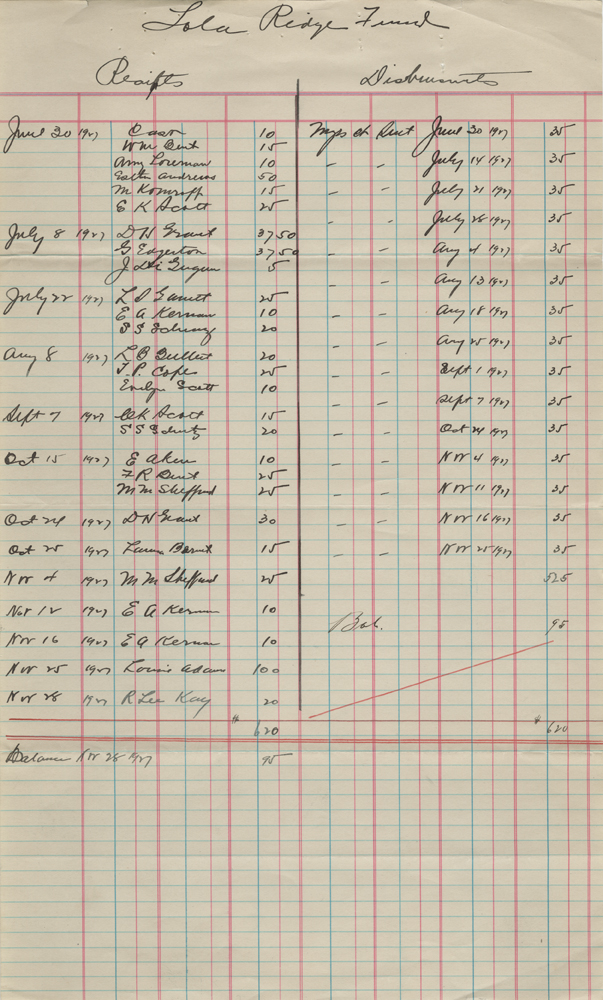 Lola Ridge Fund
Receipts
June 30 1927 10
Wm Bent 15
Amy Loveman 10
Esther Andrews 50
M Komroff 15
E K Scott 25
July 8 1927 D N Grant 37 50
G Edgerton 37 50
J 5
July 22 1927 L S Gannett 25
E A Kernan 10
S S 20
Aug 8 1927 L B 20
T. P. Cope 25
Evelyn Scott 10
Sept 7 1927 K Scott 15
S S 20
Oct 15 1927 E Aken 10
F R Bent 25
M M Sheffeund 25
Oct 24 1927 D N Grant 30
Oct 25 1927 Laura Benet 15
Nov 4 1927 M M 25
Nov 12 1927 E A Kernan 10
Nov 16 1927 E A Kernan 10
Nov 25 1927 Louis Adam 100
Nov 28 1927 R Lee Kay 20
$ 620
Balance Nov 28 1927 95
Disbursments
ck Rent June 30 1927 35
- - July 14 1927 35
- - July 21 1927 35
- - July 28 1927 35
- - Aug 4 1927 35
- - Aug 13 1927 35
- - Aug 18 1927 35
- - Aug 25 1927 35
- - Sept 1 1927 35
- - Sept 7 1927 35
- - Oct 24 1927 35
- - Nov 4 1927 35
- - Nov 11 1927 35
- - Nov 16 1927 35
- - Nov 25 1927 35
525
Bal. 95
$ 620